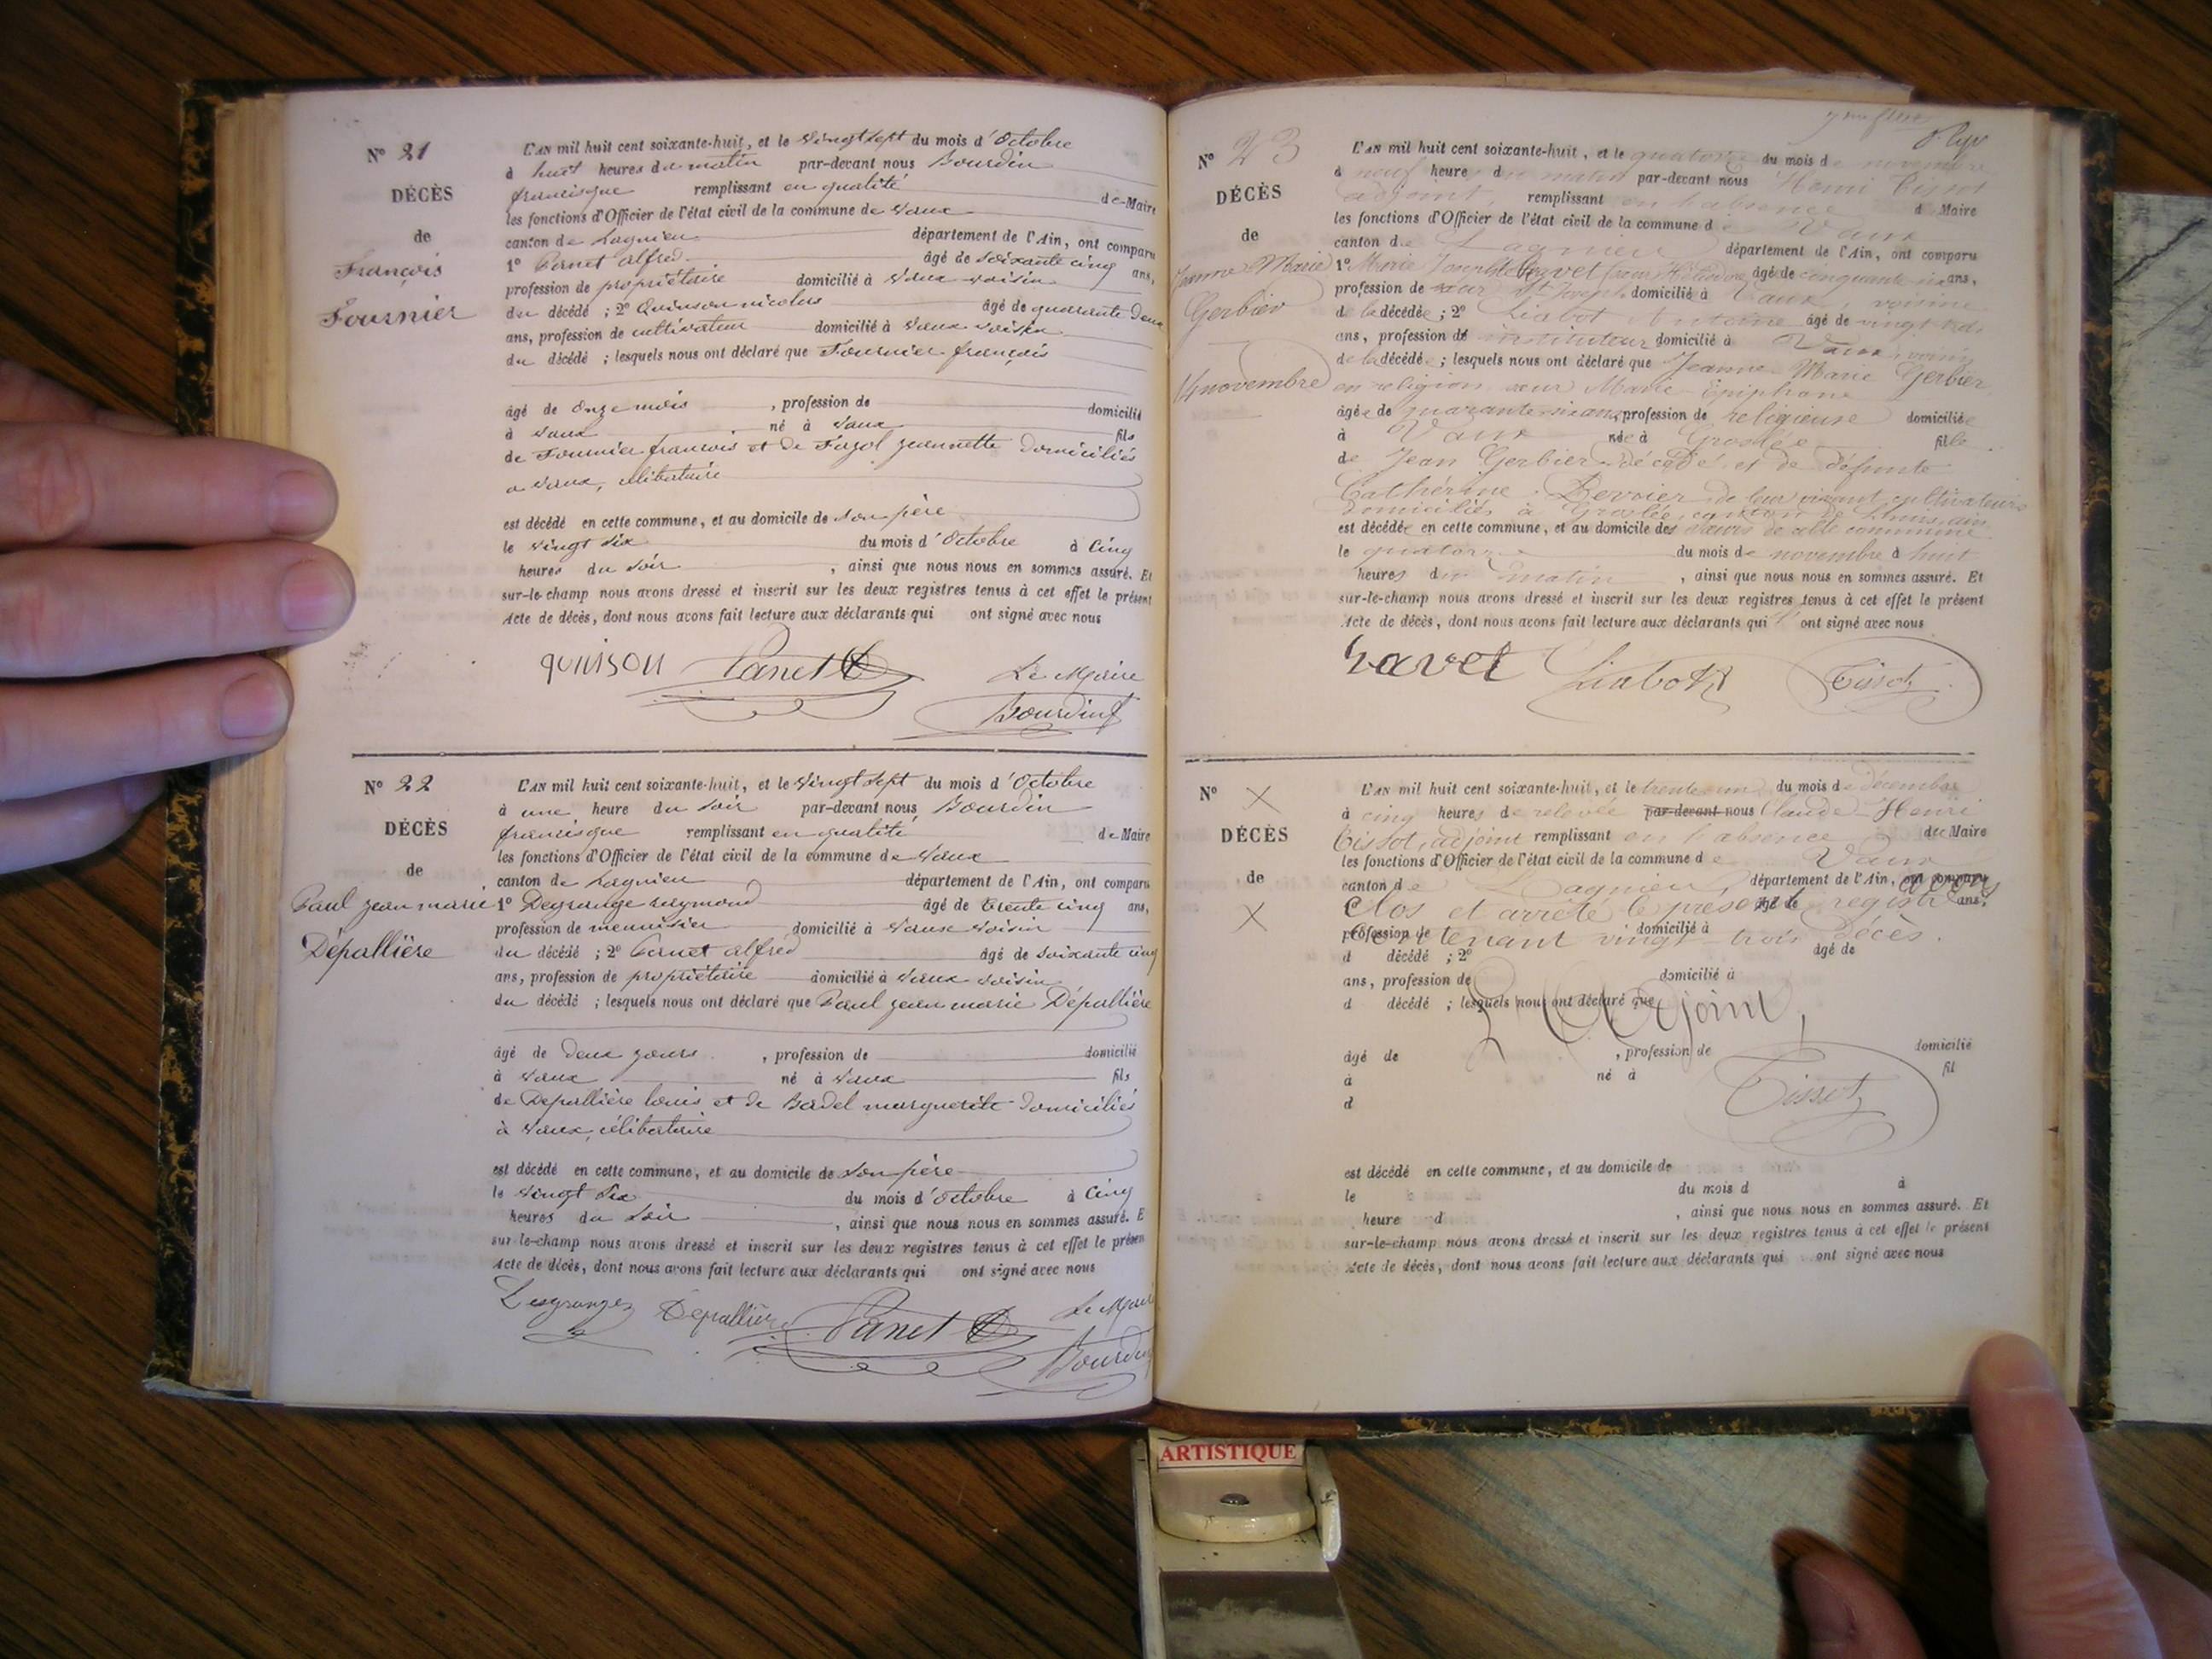 N° 21
DÉCÈS
de
François
Fournier
L'AN mil huit cent soixante-huit, et le vingt sept du mois d'Octobre
à huit heures du matin par-devant nous Bourdin
francisque remplissant en qualité de Maire
les fonctions d'Officier de l'état civil de la commune de Vaux
canton de Lagnieu département de l'Ain, ont comparu
1° Panet alfred âgé de soixante cinq ans,
profession de propriétaire domicilié à Vaux voisin
du décédé ; 2° Quinson nicolas âgé de quarante deux
ans, profession de cultivateur domicilié à Vaux voisin
du décédé ; lesquels nous ont déclaré que Fournier françois
âgé de Onze mois , profession de domicilié
à Vaux né à Vaux fils
de Fournier françois et de jeannette domiciliés
a Vaux, célibataire
est décédé en cette commune, et au domicile de son père
le vingt six du mois d'Octobre à Cinq
heures du soir , ainsi que nous nous en sommes assuré. Et
sur-le-champ nous avons dressé et inscrit sur les deux registres tenus à cet effet le présent
Acte de décès, dont nous avons fait lecture aux déclarants qui ont signé avec nous
quinson Panet Le Maire
Bourdin f
N° 22
DÉCÈS
de
Paul jean marie
Dépallière
L'AN mil huit cent soixante-huit, et le vingt sept du mois d'Octobre
à une heure du soir par-devant nous Bourdin
francisque remplissant en qualité de Maire
les fonctions d'Officier de l'état civil de la commune de Vaux
canton de Lagnieu département de l'Ain, ont comparu
1° Degrange raymond âgé de trente cinq ans,
profession de menuisier domicilié à Vaux voisin
du décédé ; 2° Panet alfred âgé de soixante cinq
ans, profession de propriétaire domicilié à Vaux voisin
du décédé ; lesquels nous ont déclaré que Paul jean marie Dépallière
âgé de deux jours , profession de domicilié
à Vaux né à Vaux fils
de Depallière louis et de Badel marguerite domiciliés
à Vaux, célibataire
est décédé en cette commune, et au domicile de son père
le vingt six du mois d'Octobre à Cinq
heures du soir , ainsi que nous nous en sommes assuré. E
sur-le-champ nous avons dressé et inscrit sur les deux registres tenus à cet effet le présen
Acte de décès, dont nous avons fait lecture aux déclarants qui ont signé avec nous
Desgranges Depallière Panet Le Maire
Bourdin
N° 23
DÉCÈS
de
Jeanne Marie
Gerbier
14 novembre
L'AN mil huit cent soixante-huit, et le quatorze du mois de novembre
à neuf heure du matin par-devant nous Henri Tissot
adjoint, remplissant en l'absence d Maire
les fonctions d'Officier de l'état civil de la commune de Vaux
canton de Lagnieu département de l'Ain, ont comparu
1° Marie âgée de cinquante ans,
profession de sœur St Joseph domicilié à Vaux, voisine
de la décédée ; 2° Liabot Antoine âgé de vingt
ans, profession de instituteur domicilié à Vaux, voisin
de la décédée ; lesquels nous ont déclaré que Jeanne Marie Gerbier
en religion sœur Marie Epiphane
âgée de quarante ans profession de religieuse domiciliée
à Vaux née à Groslée fille
de Jean Gerbier décédé et de défunte
Cathérine de leur vivant cultivateurs
domiciliés à Groslée, canton de Lhuis, ain
est décédée en cette commune, et au domicile des sœurs de cette commune
le quatorze du mois de novembre à huit
heures du matin , ainsi que nous nous en sommes assuré. Et
sur-le-champ nous avons dressé et inscrit sur les deux registres tenus à cet effet le présent
Acte de décès, dont nous avons fait lecture aux déclarants qui ont signé avec nous
Liabot Tissot
N° X
DÉCÈS
de
X
L'AN mil huit cent soixante-huit, et le trente un du mois de Décembre
à cinq heures de relevée par-devant nous Claude-Henri
Tissot, adjoint remplissant en l'absence du Maire
les fonctions d'Officier de l'état civil de la commune de Vaux
canton de Lagnieu, département de l'Ain, ont comparu avons
1° Clos et arrêté le présent âgé de registre ans,
profession de contenant vingt-trois domicilié à décès.
d décédé ; 2° âgé de
ans, profession de domicilié à
d décédé ; lesquels nous ont déclaré que
L'Adjoint,
âgé de , profession de domicilié
à né à fil
d
Tissot
est décédé en cette commune, et au domicile de
le du mois d à
heure d , ainsi que nous nous en sommes assuré. Et
sur-le-champ nous avons dressé et inscrit sur les deux registres tenus à cet effet le présent
Acte de décès, dont nous avons fait lecture aux déclarants qui ont signé avec nous
ARTISTIQUE